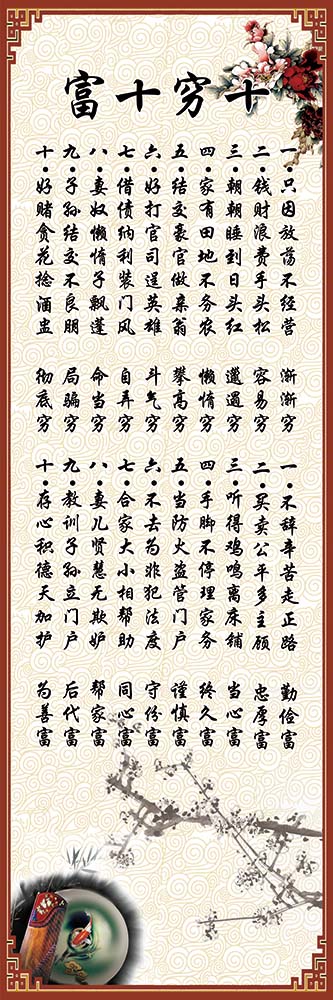 十穷十富
一·只因放荡不经营 渐渐穷
二·钱财浪费手头松 容易穷
三·朝朝睡到日头红 邋遢穷
四·家有田地不务农 懒惰穷
五·结交豪官做亲翁 攀高穷
六·好打官司逞英雄 斗气穷
七·借债纳利装门风 自弄穷
八·妻奴懒惰子飘蓬 命当穷
九·子孙结交不良朋 局骗穷
十·好赌贪花捻酒盅 彻底穷
一·不辞辛苦走正路 勤俭富
二·买卖公平多主顾 忠厚富
三·听得鸡鸣离床铺 当心富
四·手脚不停理家务 终久富
五·当防火盗管门户 谨慎富
六·不去为非犯法度 守份富
七·合家大小相帮助 同心富
八·妻儿贤慧无欺妒 帮家富
九·教训子孙立门户 后代富
十·存心积德天加护 为善富